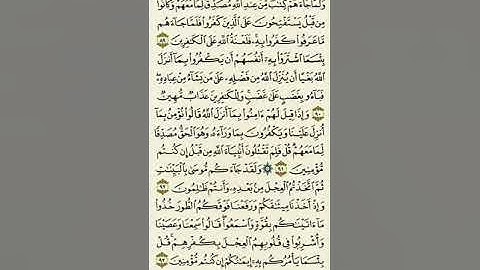 وَلَمَّا جَآءَهُمْ كِتَٰبٌ مِّنْ عِندِ ٱللَّهِ مُصَدِّقٌ لِّمَا مَعَهُمْ وَكَانُوا۟
مِن قَبْلُ يَسْتَفْتِحُونَ عَلَى ٱلَّذِينَ كَفَرُوا۟ فَلَمَّا جَآءَهُم
مَّا عَرَفُوا۟ كَفَرُوا۟ بِهِۦ فَلَعْنَةُ ٱللَّهِ عَلَى ٱلْكَٰفِرِينَ ٨٩
بِئْسَمَا ٱشْتَرَوْا۟ بِهِۦٓ أَنفُسَهُمْ أَن يَكْفُرُوا۟ بِمَآ أَنزَلَ
ٱللَّهُ بَغْيًا أَن يُنَزِّلَ ٱللَّهُ مِن فَضْلِهِۦ عَلَىٰ مَن يَشَآءُ مِنْ عِبَادِهِۦ
فَبَآءُو بِغَضَبٍ عَلَىٰ غَضَبٍ وَلِلْكَٰفِرِينَ عَذَابٌ مُّهِينٌ
٩٠ وَإِذَا قِيلَ لَهُمْ ءَامِنُوا۟ بِمَآ أَنزَلَ ٱللَّهُ قَالُوا۟ نُؤْمِنُ بِمَآ
أُنزِلَ عَلَيْنَا وَيَكْفُرُونَ بِمَا وَرَآءَهُۥ وَهُوَ ٱلْحَقُّ مُصَدِّقًا
لِّمَا مَعَهُمْ قُلْ فَلِمَ تَقْتُلُونَ أَنۢبِيَآءَ ٱللَّهِ مِن قَبْلُ إِن كُنتُم
مُّؤْمِنِينَ ٩١ ۞ وَلَقَدْ جَآءَكُم مُّوسَىٰ بِٱلْبَيِّنَٰتِ
ثُمَّ ٱتَّخَذْتُمُ ٱلْعِجْلَ مِنۢ بَعْدِهِۦ وَأَنتُمْ ظَٰلِمُونَ ٩٢
وَإِذْ أَخَذْنَا مِيثَٰقَكُمْ وَرَفَعْنَا فَوْقَكُمُ ٱلطُّورَ خُذُوا۟
مَآ ءَاتَيْنَٰكُم بِقُوَّةٍ وَٱسْمَعُوا۟ قَالُوا۟ سَمِعْنَا وَعَصَيْنَا
وَأُشْرِبُوا۟ فِى قُلُوبِهِمُ ٱلْعِجْلَ بِكُفْرِهِمْ قُلْ
بِئْسَمَا يَأْمُرُكُم بِهِۦٓ إِيمَٰنُكُمْ إِن كُنتُم مُّؤْمِنِينَ ٩٣